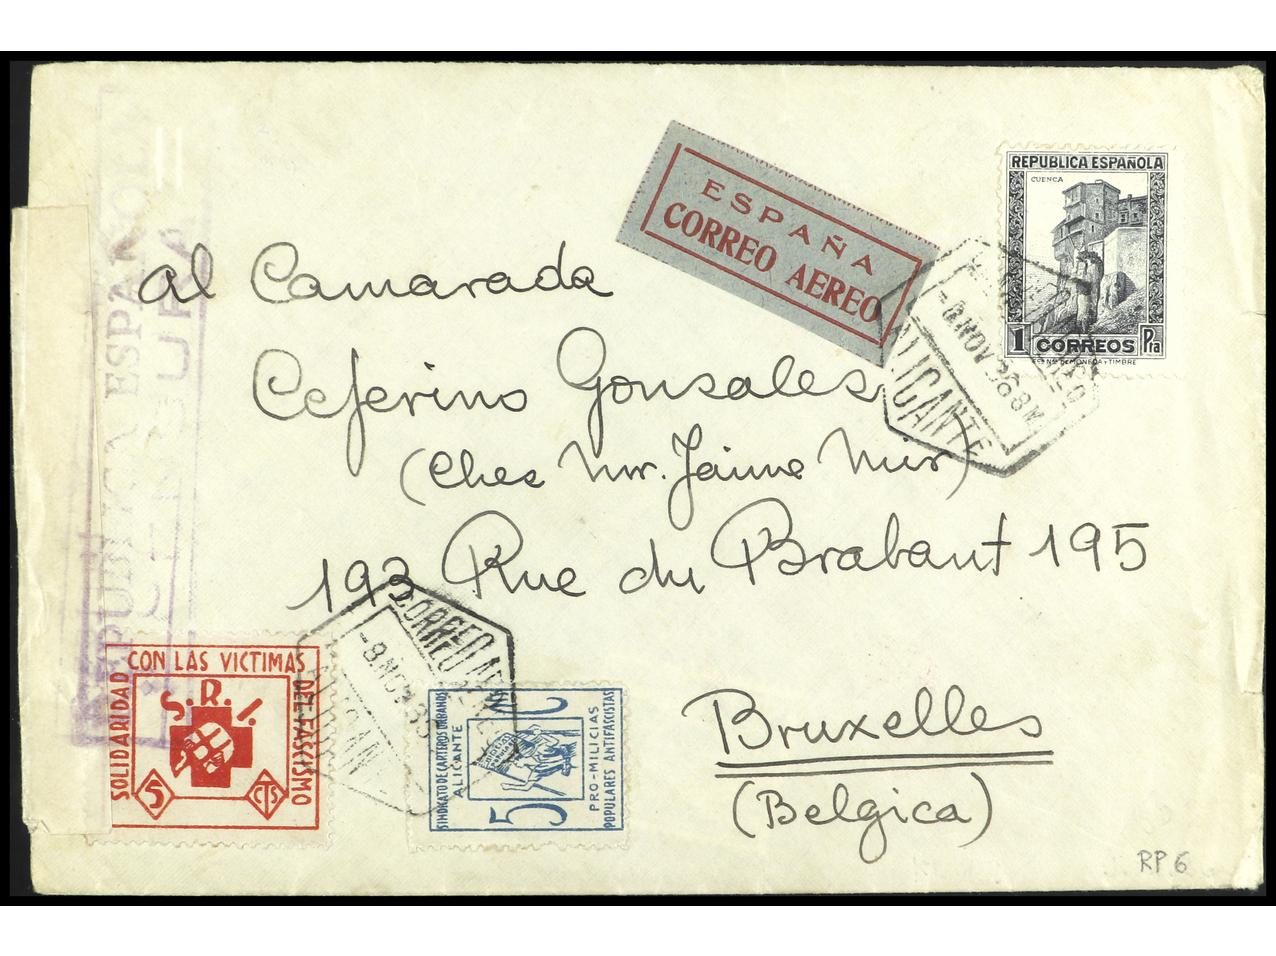 ESPAÑA
CORREO AEREO
REPUBLICA ESPAÑOLA
CUENCA
1 CORREOS Pta
al Camarada
Ceferino Gonsales
(Chez Mr. Jaime Mir)
193 Rue du Brabant 195
Bruxelles
(Belgica)
ALICANTE
REPUBLICA ESPAÑOLA
CENSURA
SOLIDARIDAD
CON LAS VICTIMAS
DEL FASCISMO
S.R.I.
5 CTS
CORREO
-8 NOV
SINDICATO DE CARTEROS URBANOS
ALICANTE
5 C
PRO-MILICIAS
POPULARES ANTIFASCISTAS
RP 6